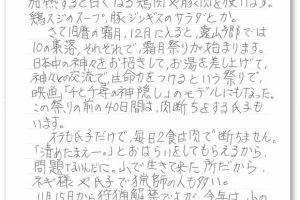 加熱すると白くなる鶏肉や豚肉を使います。
鶏スジのスープ、豚ジンギスのサラダとか。
さて旧暦の霜月、12月に入ると、遠山郷では
10の集落、それぞれで、霜月祭りが始まります。
日本中の神々をお招きして、お湯を差し上げて、
神々との交流で、生命力をつけるという祭りで、
映画「千と千尋の神隠し」のモデルにもなった。
この祭りの前の40日間は、肉断ちをする氏子も
います。
オラも氏子だけど、毎日2食は肉で断ちません。
「清めたまえー。」とおはらいをしてもらえるから、
問題ないんだに。山で生きて来た所だから、
ネギ様や氏子で猟師の人も多い。
11月15日から狩猟解禁ですが、今年は、山の